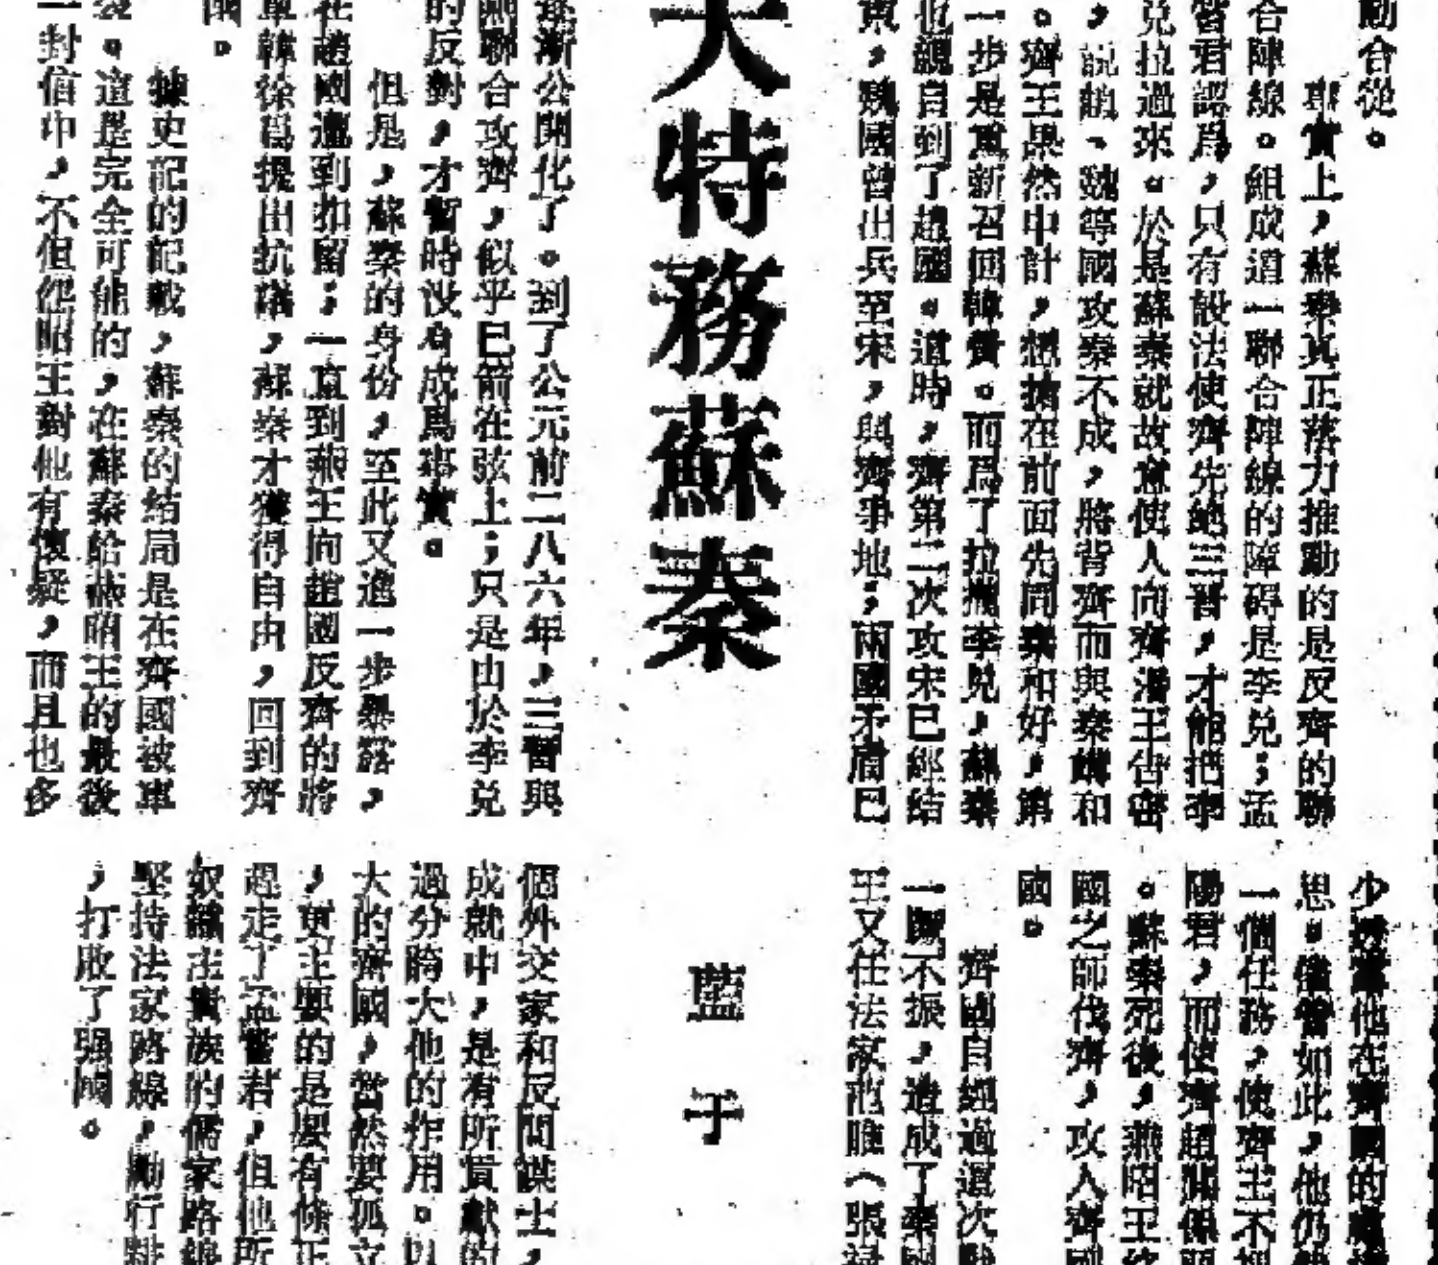 動合從。
事實上，蘇秦真正落力推動的是反齊的聯
合陣線。組成這一聯合陣線的障碍是李兌；孟
嘗君認爲，只有設法使齊先絶三晋，才能把李
兌拉過來。於是蘇秦就故意使人向齊湣王告密
，說韓、魏等國攻秦不成，將背齊而與秦講和
。齊王果然中計，想搶在前面先同秦和好，第
一步是重新召回韓聶。而爲了拉攏李兌，蘇秦
也親自到了趙國。這時，齊第二次攻宋已經結
束，魏國曾出兵至宋，與齊爭地；兩國矛盾已
大特務蘇秦
藍于
逐漸公開化了。到了公元前二八六年，三晋與
燕聯合攻齊，似乎已箭在弦上；只是由於李兌
的反對，才暫時没有成爲事實。
但是，蘇秦的身份，至此又進一步暴露，
在趙國遭到扣留；一直到燕王向趙國反齊的將
軍韓徐爲提出抗議，蘇秦才獲得自由，回到齊
國。
據史記的記載，蘇秦的結局是在齊國被車
裂。這是完全可能的，在蘇秦給燕昭王的最後
一封信中，不但怨昭王對他有懷疑，而且也多
少透露他在齊國的處境
思。儘管如此，他仍
一個任務，使齊王不
陽君，而使齊趙關係
。蘇秦死後，燕昭王終
國之師伐齊，攻入齊國
國。
齊國自經過這次戰
一蹶不振，造成了秦國
王又任法家范雎（張祿
個外交家和反間謀士，
成就中，是有所貢獻的
過分誇大他的作用。以
大的齊國，當然要孤立
，更主要的是要有條正
趕走了孟嘗君，但他所
奴隸主貴族的儒家路線
堅持法家路線，勵行耕
，打敗了强國。